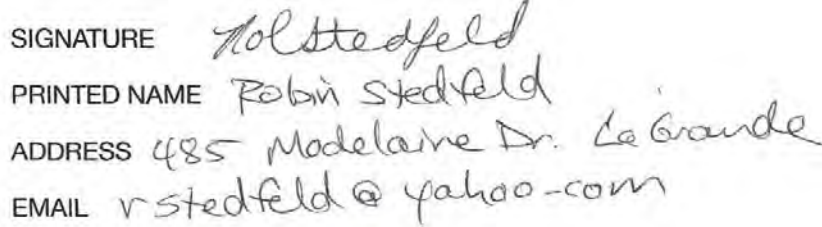 SIGNATURE Rolstedfeld
PRINTED NAME Robin Stedfeld
ADDRESS 485 Modelaire Dr. La Grande
EMAIL rstedfeld@yahoo.com